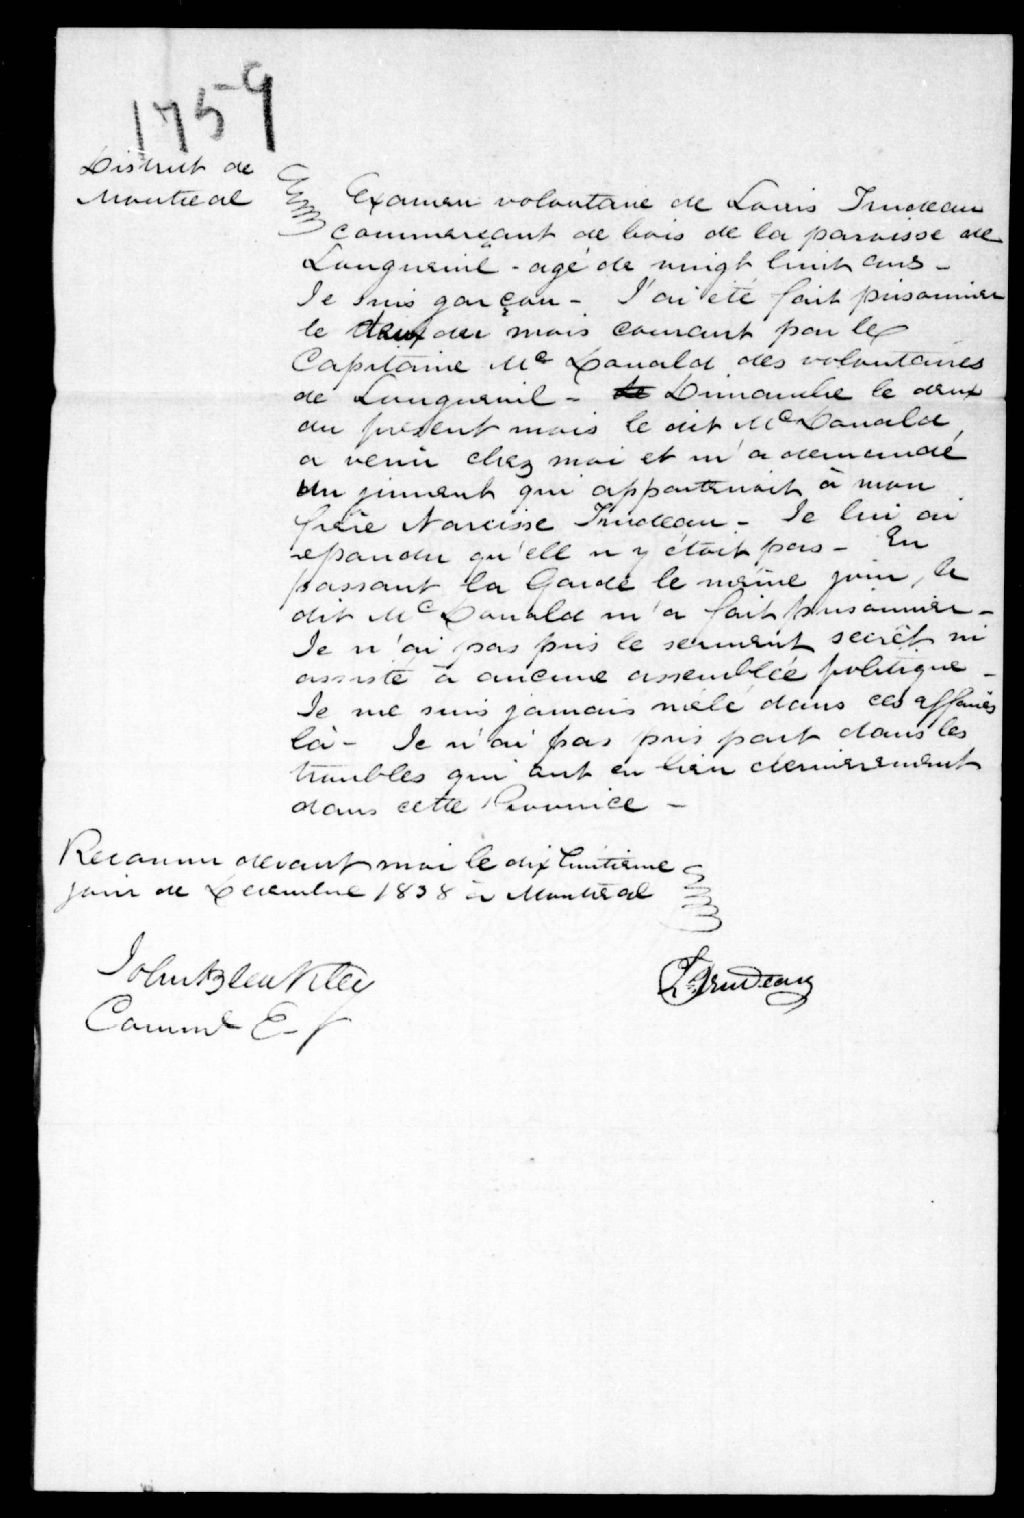 1759
District de
Montreal
Examen volontaire de Louis Trudeau
commerçant de bois de la paroisse de
Longueuil - agé de vingt huit ans -
Je suis garçon - J'ai été fait prisonnier
le deux du mois courant par le
Capitaine Mc Donald des volontaires
de Longueuil - le Dimanche le deux
du présent mois le dit Mc Donald
a venir chez moi et m'a demandé
un jument qui appartenoit à mon
frère Narcisse Trudeau - Je lui ai
repondu qu'ell n'y était pas - En
passant la Garde le même jour, le
dit Mc Donald m'a fait prisonnier -
Je n'ai pas pris le serment secrêt ni
assisté à aucune assemblée politique -
Je me suis jamais mêlé dans ces affaires
là - Je n'ai pas pris part dans les
troubles qui ont eu lieu dernierement
dans cette Province -
Reconnu devant moi le dix huitieme
jour de Décembre 1838 à Montréal
John Bleakley
Comme E-
Ls. Trudeau